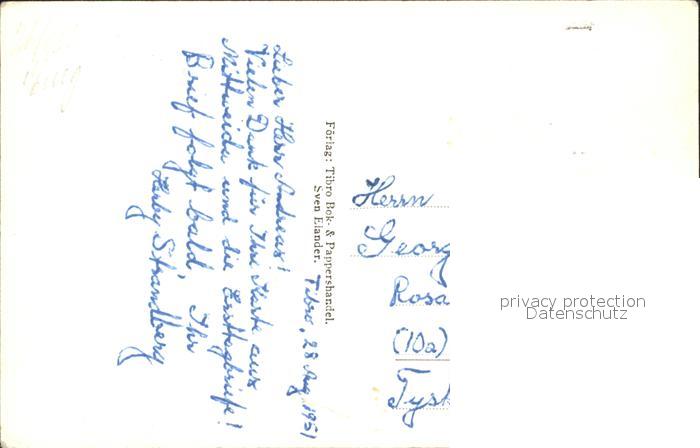 Tibro, 28 Aug 1951
Lieber Herr Andreas!
Vielen Dank für Ihre Karte aus
Mittweida und die Ersttagbriefe!
Brief folgt bald, Ihr
Strandberg
Förlag: Tibro Bok- & Pappershandel.
Sven Elander.
Herrn
Georg
Rosa
(10a)
Tysk
privacy protection
Datenschutz